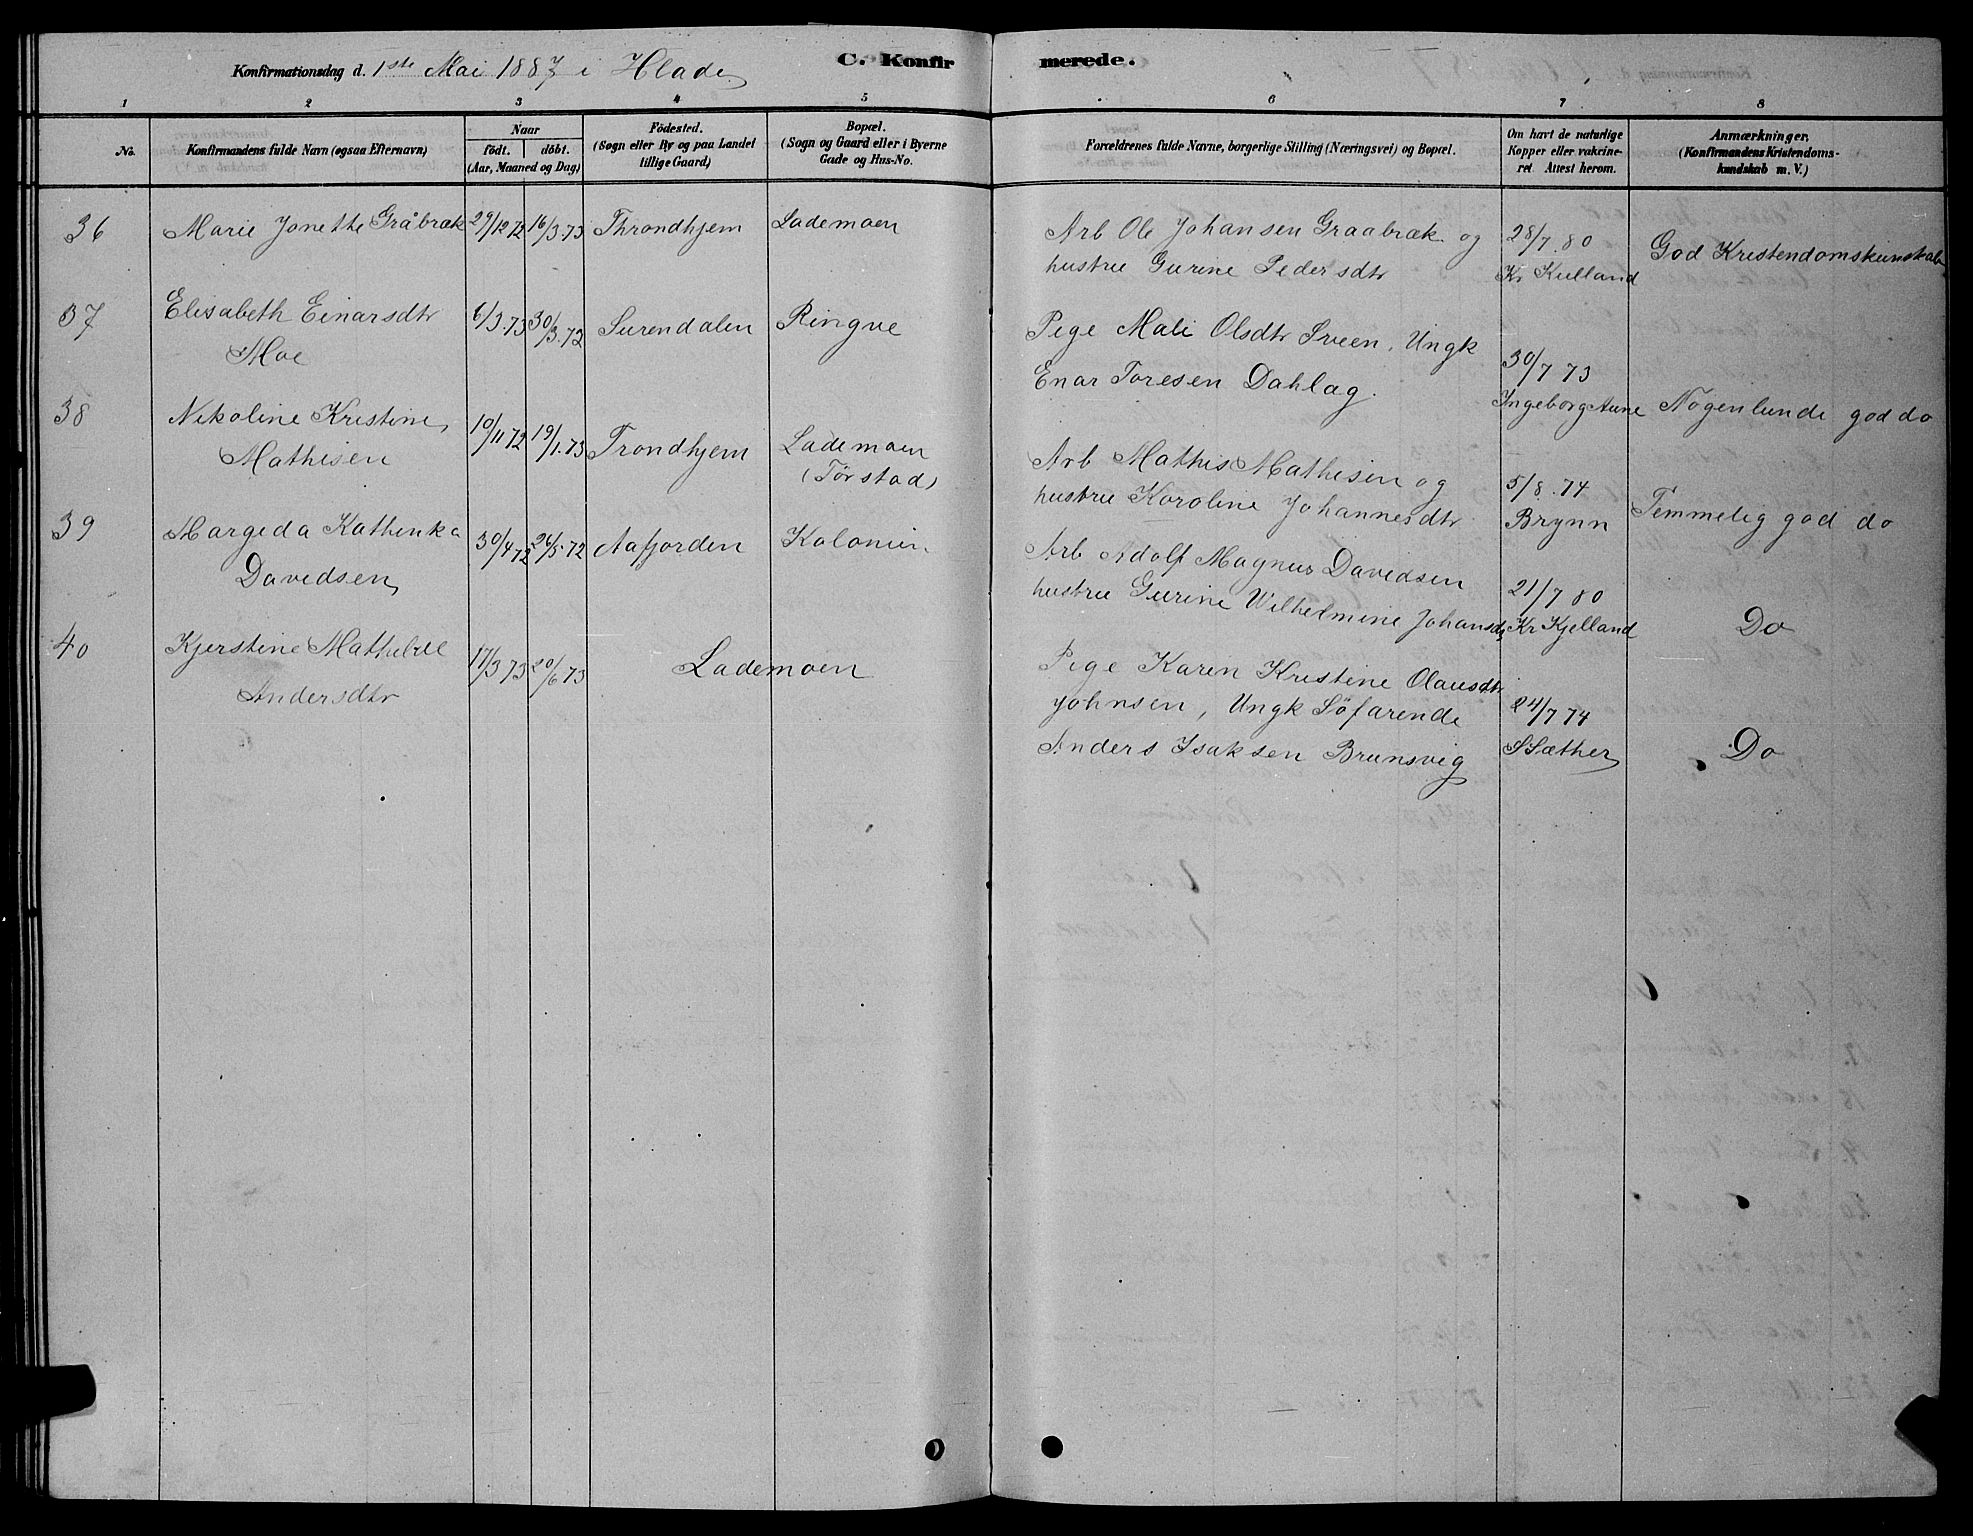 Konfirmationsdag d. 1ste Mai 1887 i Hlade
C. Konfirmerede.
1 2 3 4 5 6 7 8
No.
Konfirmandens fulde Navn (ogsaa Efternavn)
Naar
födt. döbt.
(Aar, Maaned og Dag)
Födested.
(Sogn eller By og paa Landet
tillige Gaard)
Bopæl.
(Sogn og Gaard eller i Byerne
Gade og Hus-No.
Forældrenes fulde Navne, borgerlige Stilling (Næringsvei) og Bopæl.
Om havt de naturlige
Kopper eller vakcine-
ret Attest herom.
Anmærkninger.
(Konfirmandens Kristendoms-
kundskab m. V.)
36 Marie Jonette Gråbræk 29/12 72 16/3.73 Throndhjem Lademoen
Arb Ole Johansen Graabræk og
hustru Gurine Pedersdtr
28/7.80
Kr Kielland
God Kristendomskunskab
37 Elisabeth Einarsdtr
Moe
6/3.73 30/3.72 Surendalen Ringve
Pige Mali Olsdtr Sveen, Ungk
Enar Toresen Dahlag.
30/7 73
Ingeborg Aune
Nogenlunde god do
38 Nikoline Kristine
Mathisen
10/11 72 19/1.73 Trondhjem Lademoen
(Törstad)
Arb Mathis Mathisen og
hustru Karoline Johannesdtr
5/8.74
Brynn
Temmelig god do
39 Margeda Kathinka
Davidsen
30/4 72 26/5.72 Aafjorden Kolonien
Arb Adolf Magnus Davidsen
hustru Gurine Wilhelmine Johansd
21/7 80
Kr Kjelland
Do
40 Kjerstine Mathilde
Andersdtr
17/3 73 20/6 73 Lademoen
Pige Karen Kristine Olausdtr
Johnsen, Ungk Söfarende
Anders Isaksen Brunsvig
24/7 74
S Sæther
Do